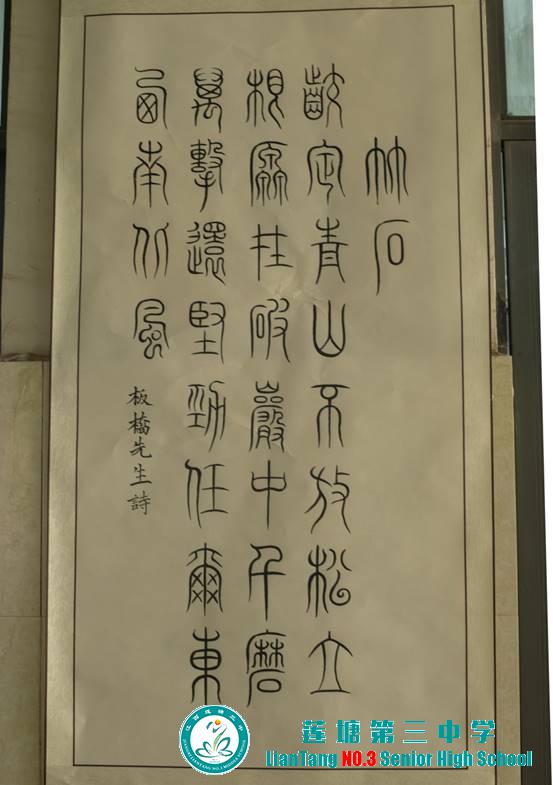 竹石
齩定青山不放松立
根原在破巖中千磨
萬擊還堅勁任爾東
西南北風
板橋先生詩
莲塘第三中学
LianTang NO.3 Senior High School